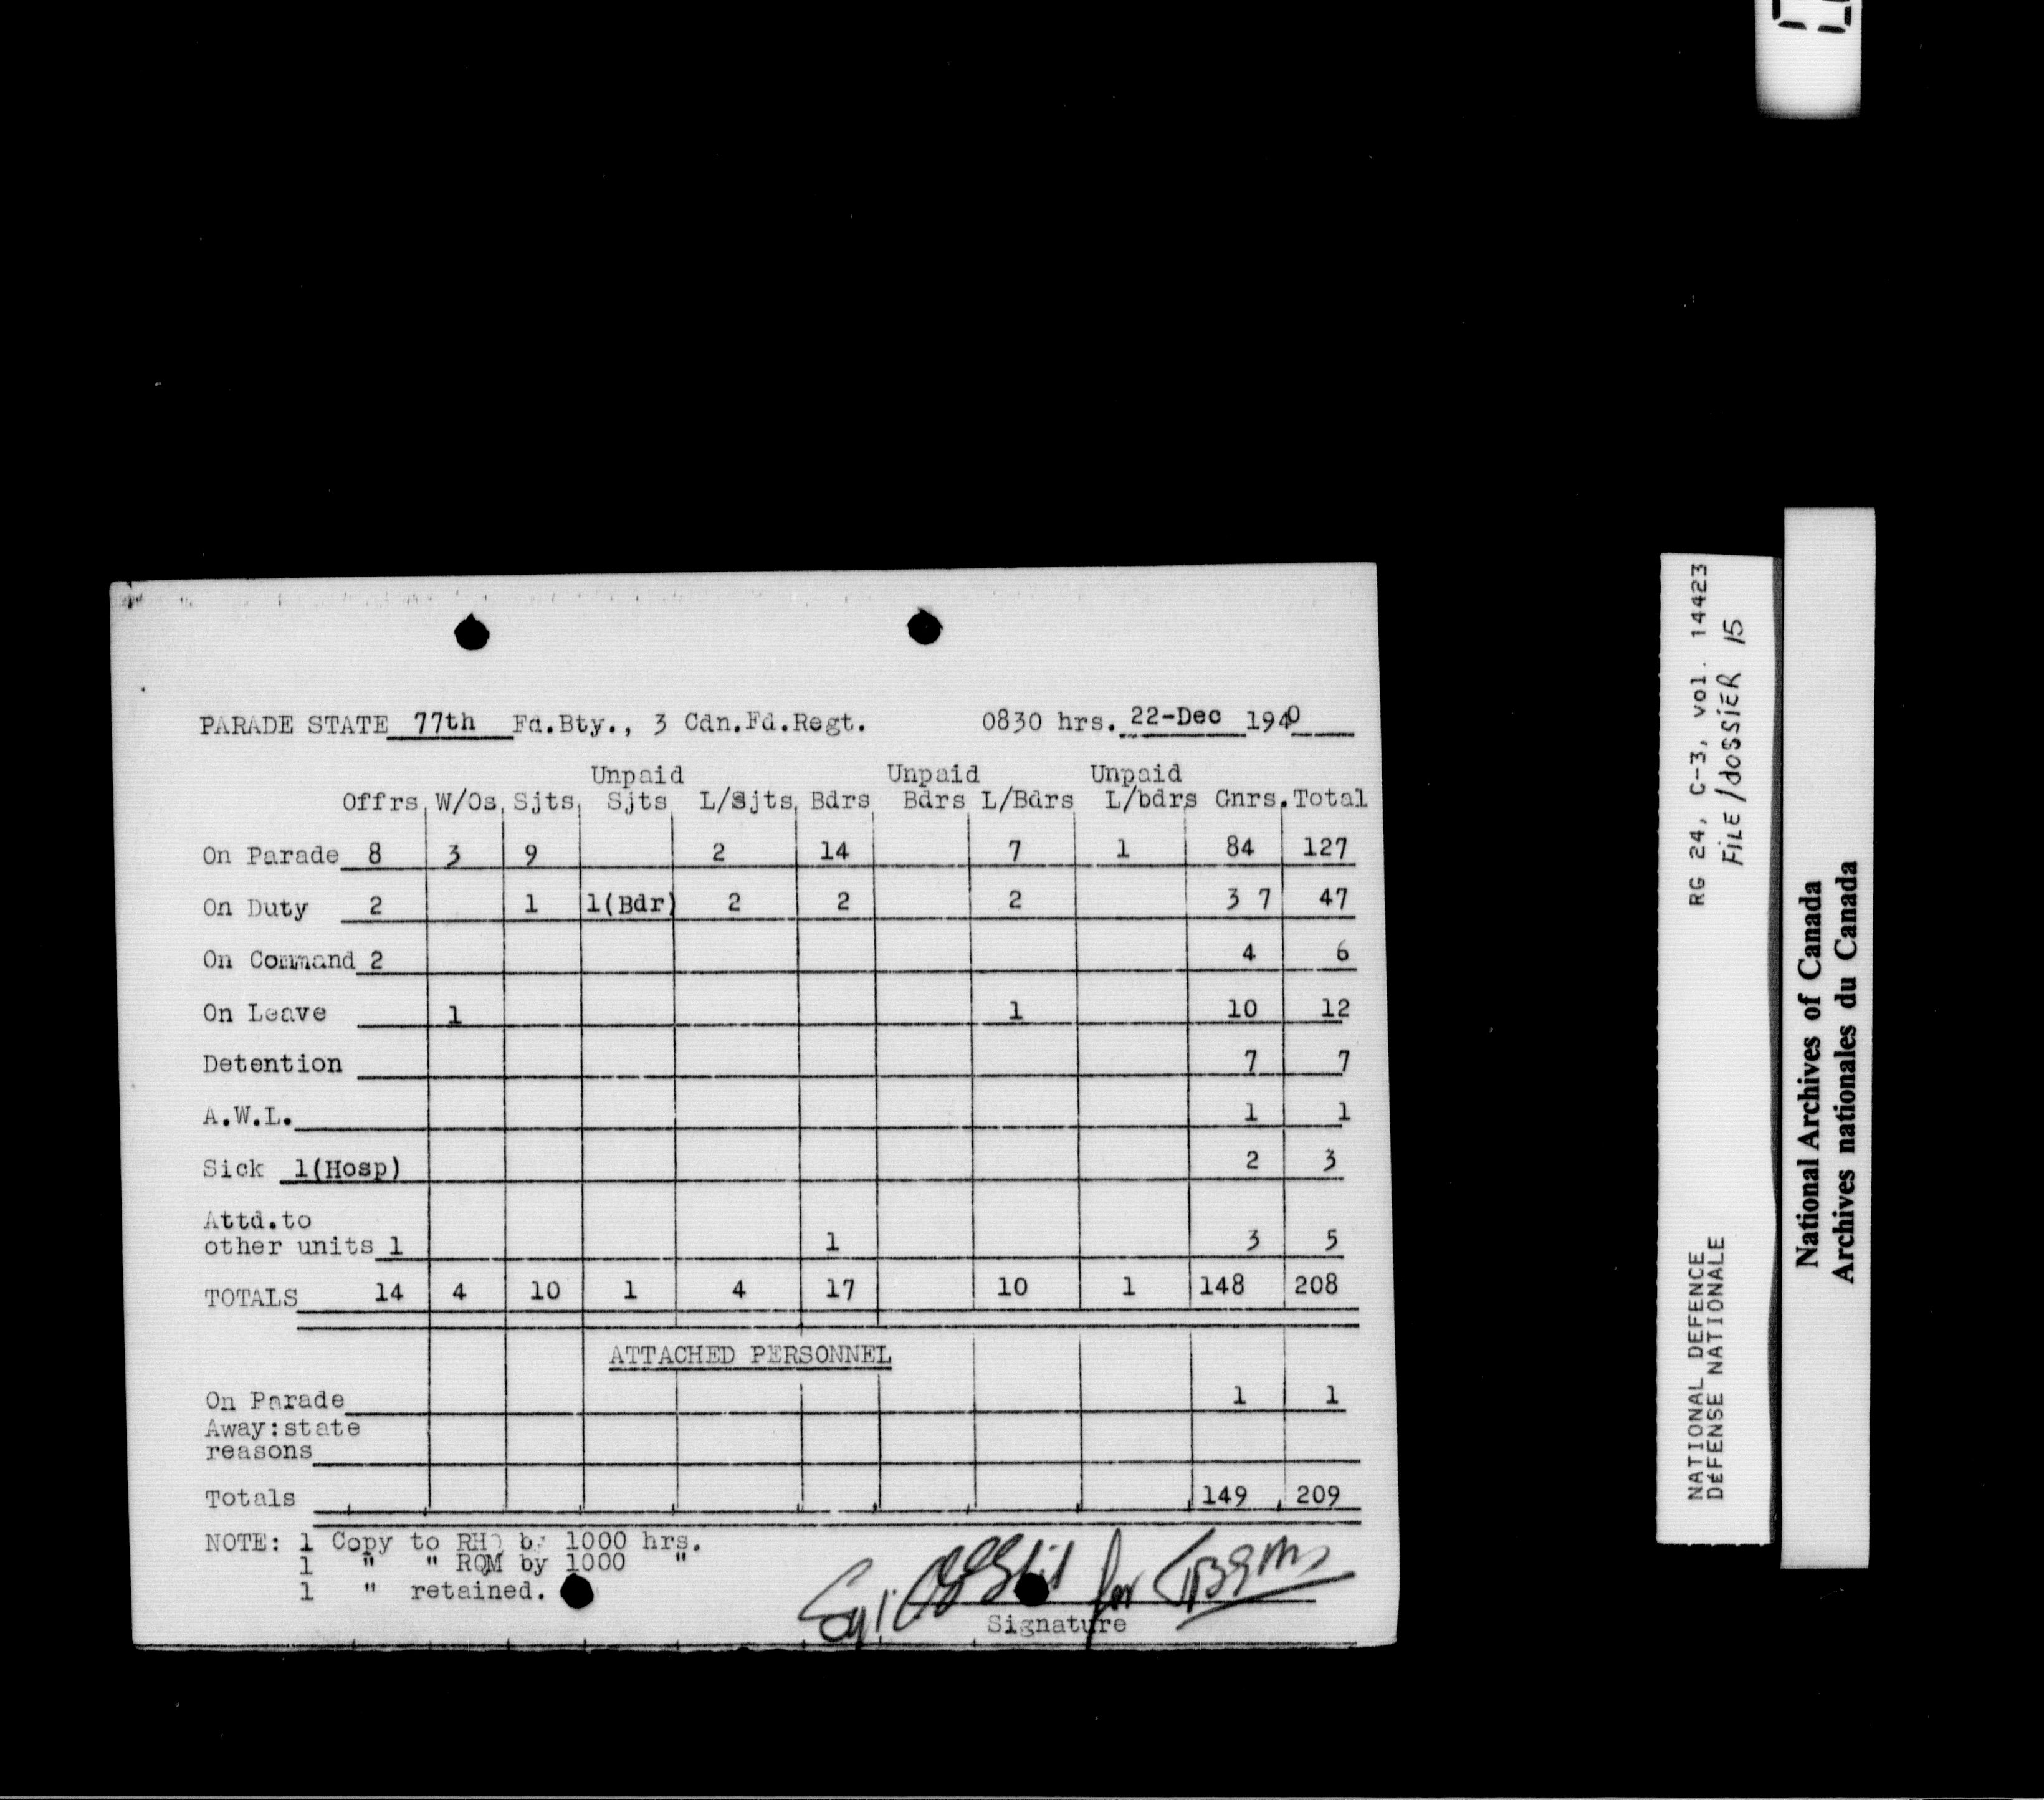 PARADE STATE 77th Fd.Bty., 3 Cdn.Fd.Regt. 0830 hrs. 22-Dec 1940
Unpaid Unpaid Unpaid
Offrs W/Os Sjts Sjts L/Sjts Bdrs Bdrs L/Bdrs L/bdrs Gnrs. Total
On Parade 8 3 9 2 14 7 1 84 127
On Duty 2 1 1(Bdr) 2 2 2 3 7 47
On Command 2 4 6
On Leave 1 1 10 12
Detention 7 7
A.W.L. 1 1
Sick 1(Hosp) 2 3
Attd.to
other units 1 1 3 5
TOTALS 14 4 10 1 4 17 10 1 148 208
ATTACHED PERSONNEL
On Parade 1 1
Away:state
reasons
Totals 149 209
NOTE: 1 Copy to RHQ by 1000 hrs.
1 " " RQM by 1000 "
1 " retained.
for
Signature
RG 24, C-3, vol. 14423
FILE/dossier 15
NATIONAL DEFENCE
DÉFENSE NATIONALE
National Archives of Canada
Archives nationales du Canada